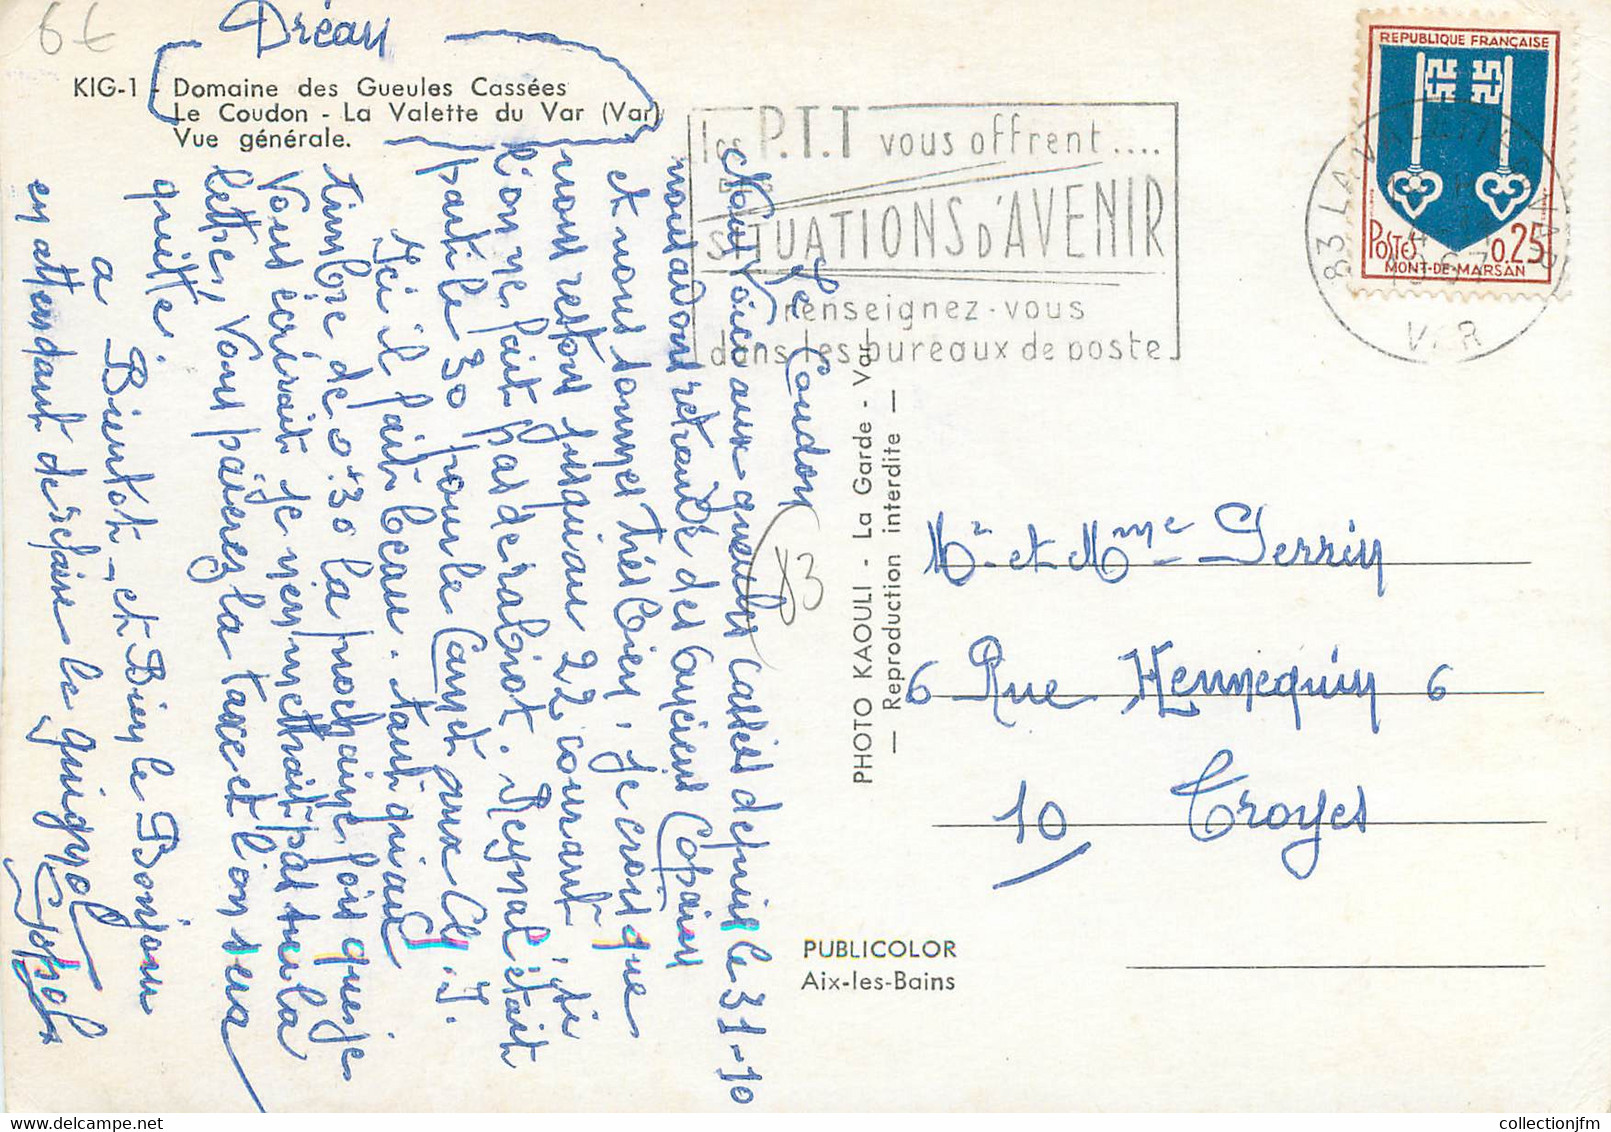 6€
Dréan
KIG-1 - Domaine des Gueules Cassées
Le Coudon - La Valette du Var (Var)
Vue générale.
les P.T.T vous offrent....
DES
SITUATIONS D'AVENIR
renseignez-vous
dans les bureaux de poste
REPUBLIQUE FRANÇAISE
POSTES 0.25
MONT-DE-MARSAN
83 LA VALETTE DU VAR
VAR
Le Coudon
Nous Voici aux gueules cassées depuis le 31-10
nous avons retrouvé des anciens Copains
et nous sommes très bien, je crois que
nous restons jusqu'au 22 courant, si
l'on ne fait pas de rabiot. Reynal était
parti le 30 pour le Cannet aux
Ici il fait beau. tant qu'au
timbre de 0.30 la prochaine fois que je
Vous écrirait je n'en mettrait pas sur la
lettre, Vous paierez la taxe et l'on sera
quitte.
a Bientot, et Bien le Bonjour
en attendant de refaire le guignol
83
PHOTO KAOULI - La Garde - Var
— Reproduction interdite —
Mr et Mme Perrin
6 Rue Hennequin 6
10 Troyes
PUBLICOLOR
Aix-les-Bains
collectionjfm